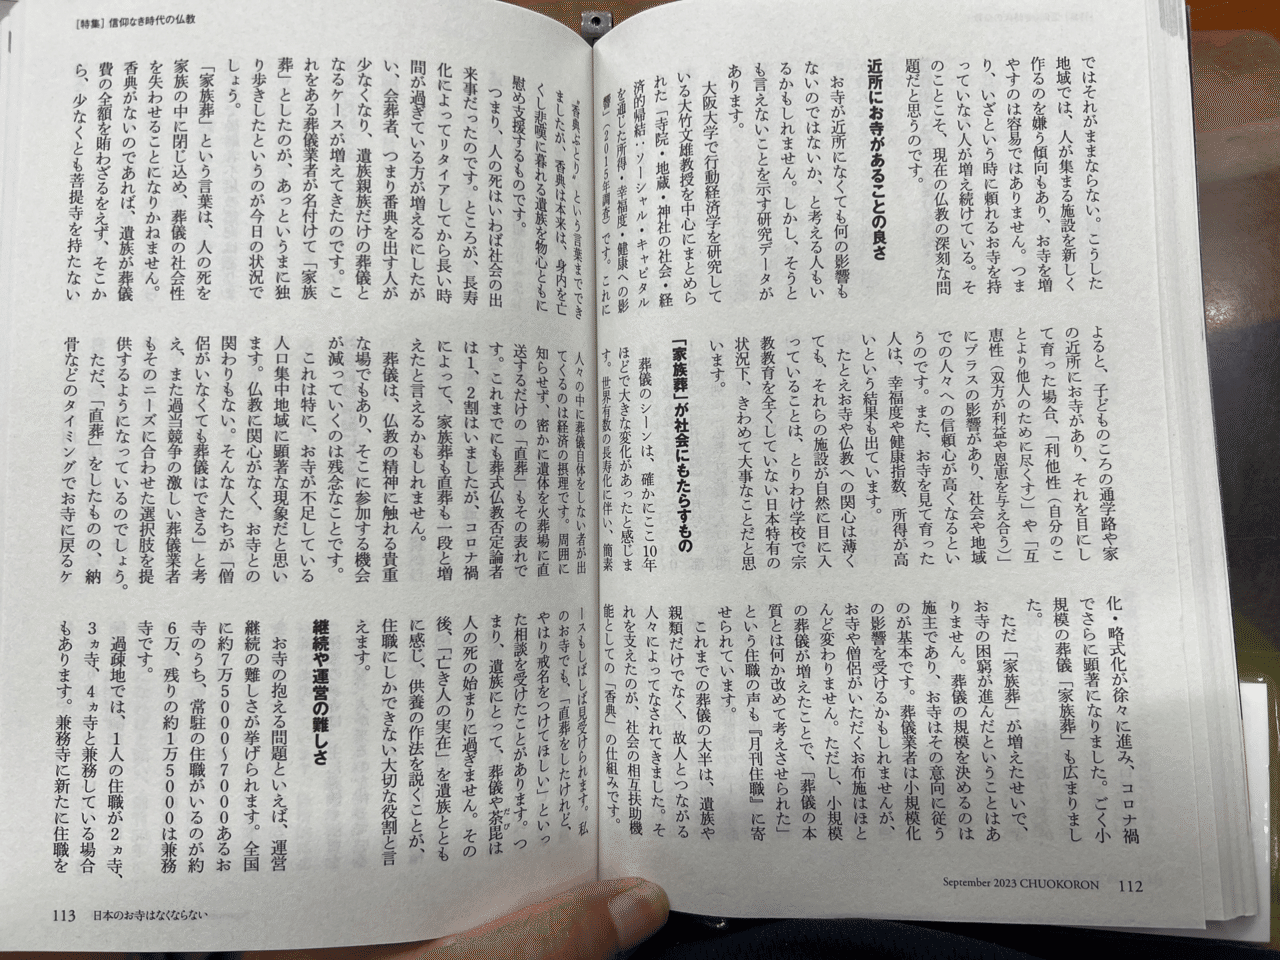 ではそれがままならない。こうした
地域では、人が集まる施設を新しく
作るのを嫌う傾向もあり、お寺を増
やすのは容易ではありません。つま
り、いざという時に頼れるお寺を持
っていない人が増え続けている。そ
のことこそ、現在の仏教の深刻な問
題だと思うのです。
近所にお寺があることの良さ
お寺が近所になくても何の影響も
ないのではないか、と考える人もい
るかもしれません。しかし、そうと
も言えないことを示す研究データが
あります。
大阪大学で行動経済学を研究して
いる大竹文雄教授を中心にまとめら
れた「寺院・地蔵・神社の社会・経
済的帰結:ソーシャル・キャピタル
を通した所得・幸福度・健康への影
響」（2015年調査）です。これに
よると、子どものころの通学路や家
の近所にお寺があり、それを目にし
て育った場合、「利他性（自分のこ
とより他人のために尽くす）」や「互
恵性（双方が利益や恩恵を与え合う）」
にプラスの影響があり、社会や地域
での人々への信頼心が高くなるとい
うのです。また、お寺を見て育った
人は、幸福度や健康指数、所得が高
いという結果も出ています。
たとえお寺や仏教への関心は薄く
ても、それらの施設が自然に目に入
っていることは、とりわけ学校で宗
教教育を全くしていない日本特有の
状況下、きわめて大事なことだと思
います。
「家族葬」が社会にもたらすもの
葬儀のシーンは、確かにここ10年
ほどで大きな変化があったと感じま
す。世界有数の長寿化に伴い、簡素
化・略式化が徐々に進み、コロナ禍
でさらに顕著になりました。ごく小
規模の葬儀「家族葬」も広まりまし
た。
ただ「家族葬」が増えたせいで、
お寺の困窮が進んだということはあ
りません。葬儀の規模を決めるのは
施主であり、お寺はその意向に従う
のが基本です。葬儀業者は小規模化
の影響を受けるかもしれませんが、
お寺や僧侶がいただくお布施はほと
んど変わりません。ただし、小規模
の葬儀が増えたことで、「葬儀の本
質とは何か改めて考えさせられた」
という住職の声も『月刊住職』に寄
せられています。
これまでの葬儀の大半は、遺族や
親類だけでなく、故人とつながる
人々によってなされてきました。そ
れを支えたのが、社会の相互扶助機
能としての「香典」の仕組みです。
September 2023 CHUOKORON 112
［特集］信仰なき時代の仏教
“香典ぶとり”という言葉まででき
ましたが、香典は本来は、身内を亡
くし悲嘆に暮れる遺族を物心ともに
慰め支援するものです。
つまり、人の死はいわば社会の出
来事だったのです。ところが、長寿
化によってリタイアしてから長い時
間が過ぎている方が増えるにしたが
い、会葬者、つまり香典を出す人が
少なくなり、遺族親族だけの葬儀と
なるケースが増えてきたのです。こ
れをある葬儀業者が名付けて「家族
葬」としたのが、あっというまに独
り歩きしたというのが今日の状況で
しょう。
「家族葬」という言葉は、人の死を
家族の中に閉じ込め、葬儀の社会性
を失わせることになりかねません。
香典がないのであれば、遺族が葬儀
費の全額を賄わざるをえず、そこか
ら、少なくとも菩提寺を持たない
人々の中に葬儀自体をしない者が出
てくるのは経済の摂理です。周囲に
知らせず、密かに遺体を火葬場に直
送するだけの「直葬」もその表れで
す。これまでにも葬式仏教否定論者
は1、2割はいましたが、コロナ禍
によって、家族葬も直葬も一段と増
えたと言えるかもしれません。
葬儀は、仏教の精神に触れる貴重
な場でもあり、そこに参加する機会
が減っていくのは残念なことです。
これは特に、お寺が不足している
人口集中地域に顕著な現象だと思い
ます。仏教に関心がなく、お寺との
関わりもない。そんな人たちが「僧
侶がいなくても葬儀はできる」と考
え、また過当競争の激しい葬儀業者
もそのニーズに合わせた選択肢を提
供するようになっているのでしょう。
ただ、「直葬」をしたものの、納
骨などのタイミングでお寺に戻るケ
ースもしばしば見受けられます。私
のお寺でも、「直葬をしたけれど、
やはり戒名をつけてほしい」といっ
た相談を受けたことがあります。つ
まり、遺族にとって、葬儀や荼毘は
だび
人の死の始まりに過ぎません。その
後、「亡き人の実在」を遺族ととも
に感じ、供養の作法を説くことが、
住職にしかできない大切な役割と言
えます。
継続や運営の難しさ
お寺の抱える問題といえば、運営
継続の難しさが挙げられます。全国
に約7万5000〜7000あるお
寺のうち、常駐の住職がいるのが約
6万、残りの約1万5000は兼務
寺です。
過疎地では、1人の住職が2ヵ寺、
3ヵ寺、4ヵ寺と兼務している場合
もあります。兼務寺に新たに住職を
113 日本のお寺はなくならない